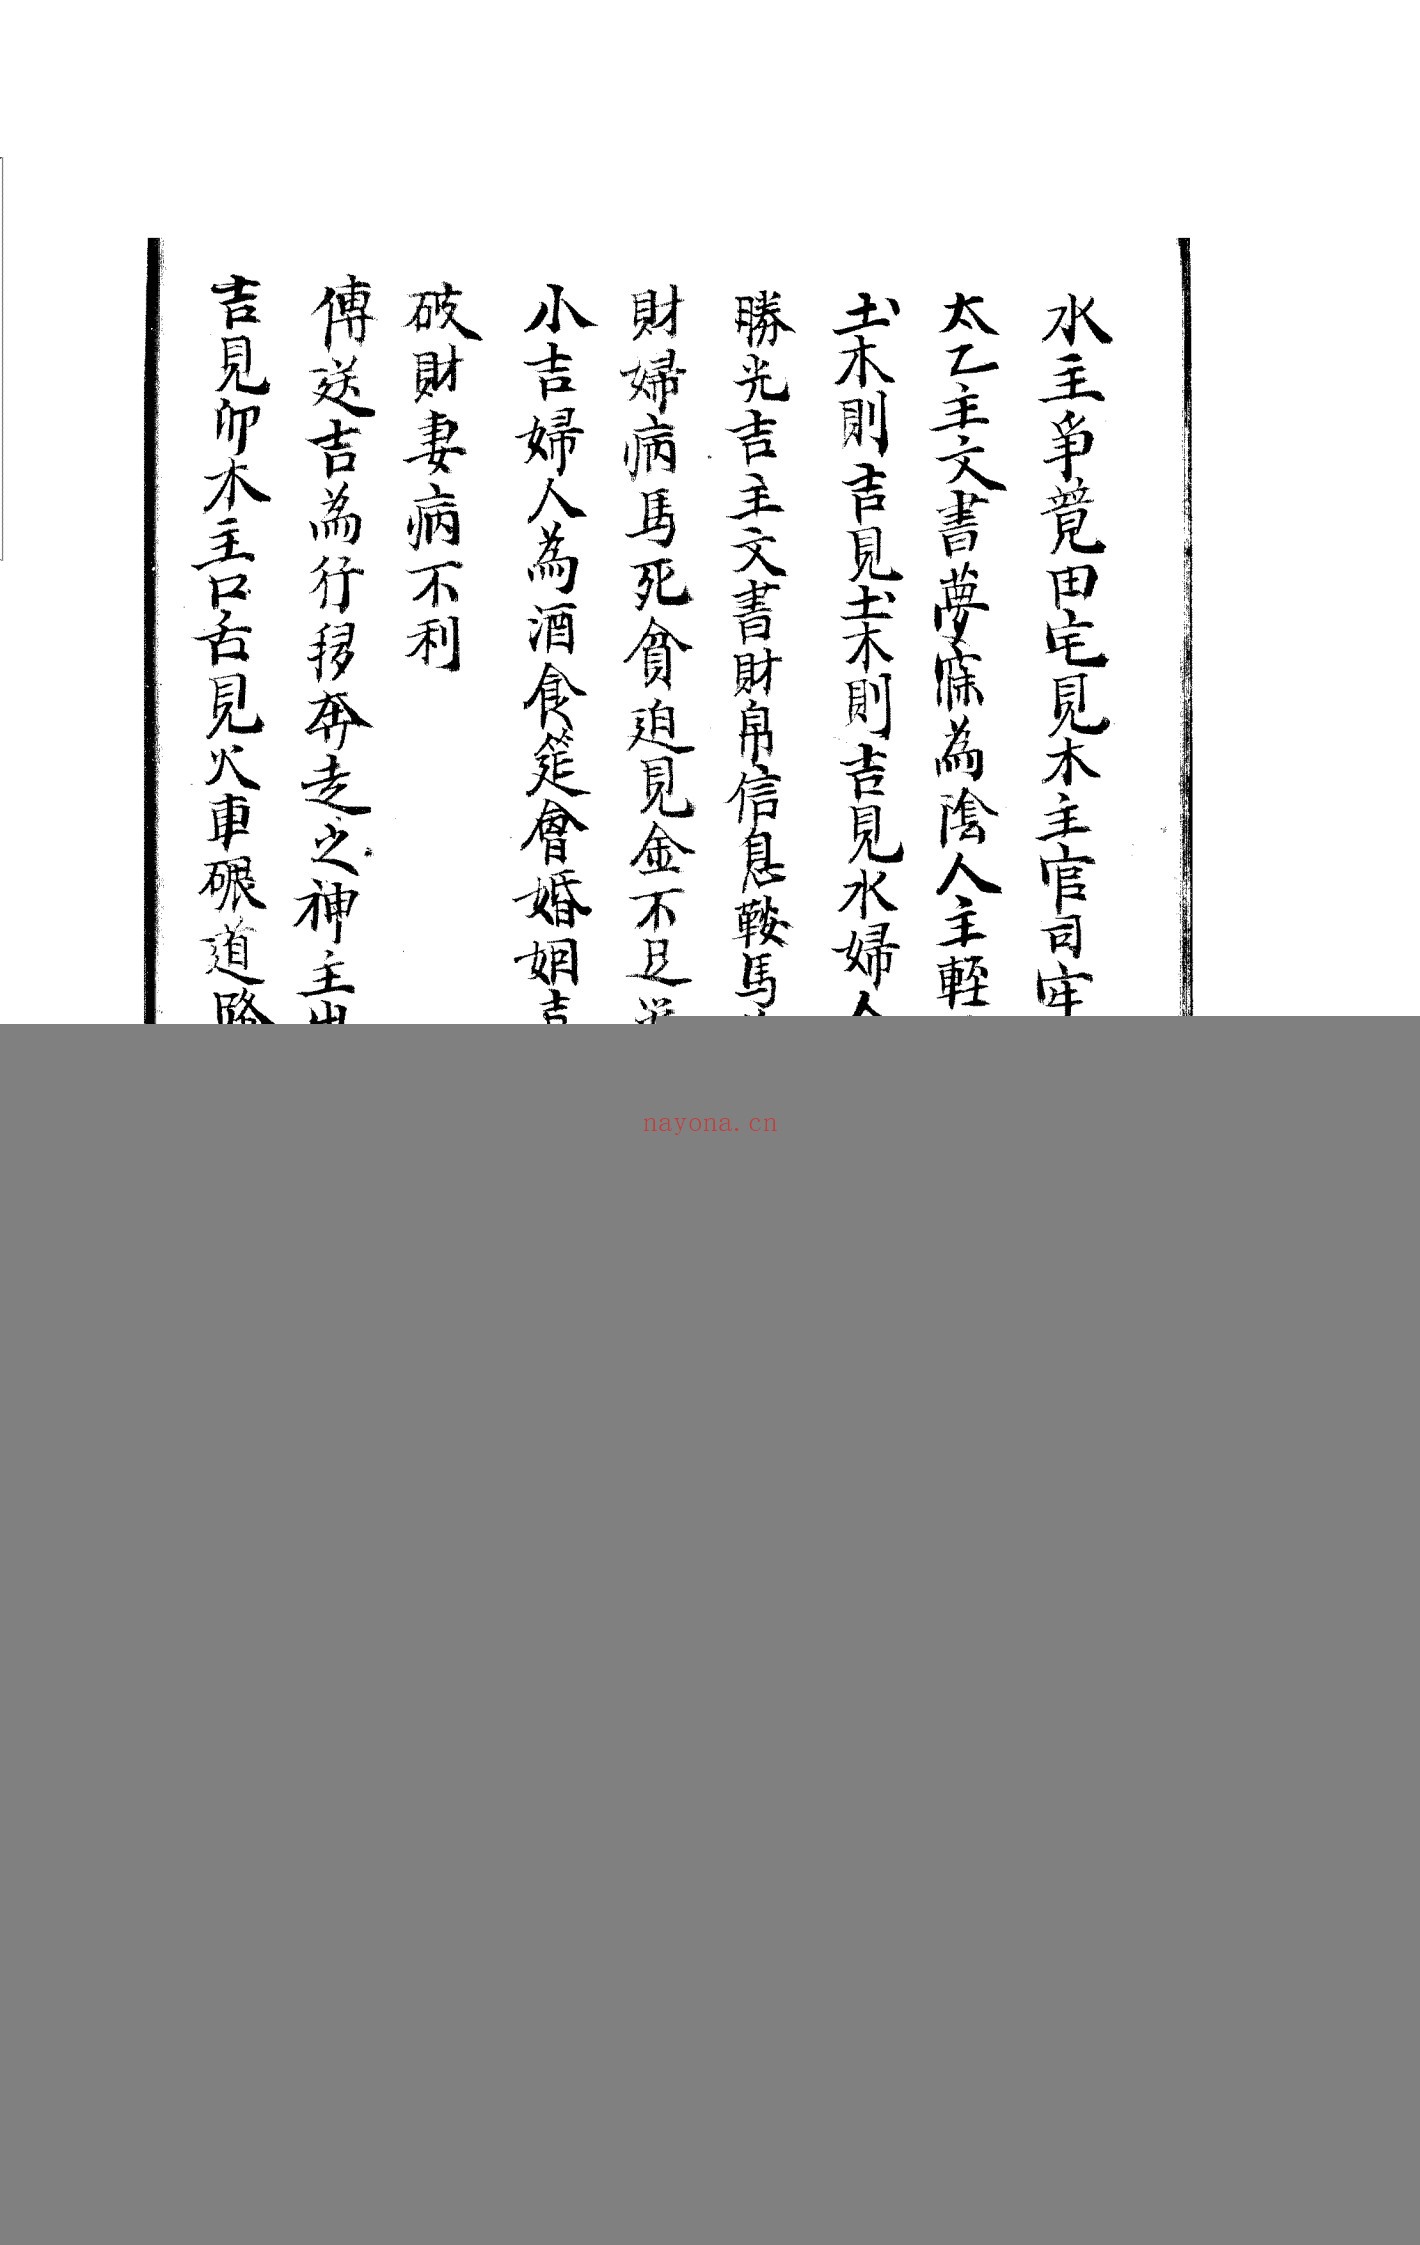 水主爭競田宅見木主官司牢
太乙主文書夢寐為陰人主輕
土木則吉見土木則吉見水婦人
勝光吉主文書財帛信息鞍馬
財婦病馬死貧迫見金不足
小吉婦人為酒食筵會婚姻吉
破財妻病不利
傳送吉為行移奔走之神主出
吉見卯木主口舌見火車碾道路
nayona.cn